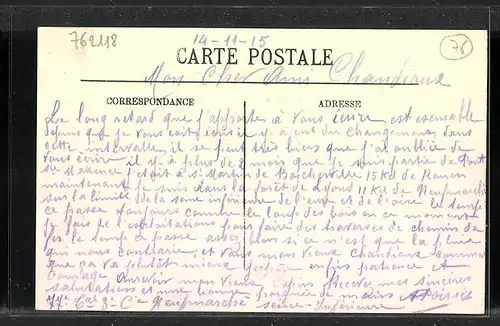 762118
14-11-15
76
CARTE POSTALE
Mon Cher Ami Chandioux
CORRESPONDANCE
ADRESSE
Le long retard que j'apporte à vous écrire est excusable
depuis que je vous ait écrit il y a eut des Changements dans
cette intervalle, il se peut très bien que j'ai oublié de
vous écrire il y a plus de 2 mois que je suis partie de Pont
St Maxence j'ai été à St Martin de Boscherville 15 Kil de Rouen
maintenant je suis dans la forêt de Lyons 11 Kil de Neufmarché
sur la limite de la seine inférieure de l'eure et de l'oise le temps
ce passe toujours comme le loup des bois en ce moment
je fais de l'exploitations pour faire des traverses de chemin de
fer le temps ce passe assez bien si ce n'est que la pluie
qui nous contrarie, et vous mon vieux Chandioux comment
que ca va plutôt mieux j'espère enfin patience et
courage Aurevoir mon Vieux Recevez mes sincères
salutations et une bonne poignée de mains
Cie Neufmarché seine-Inférieure